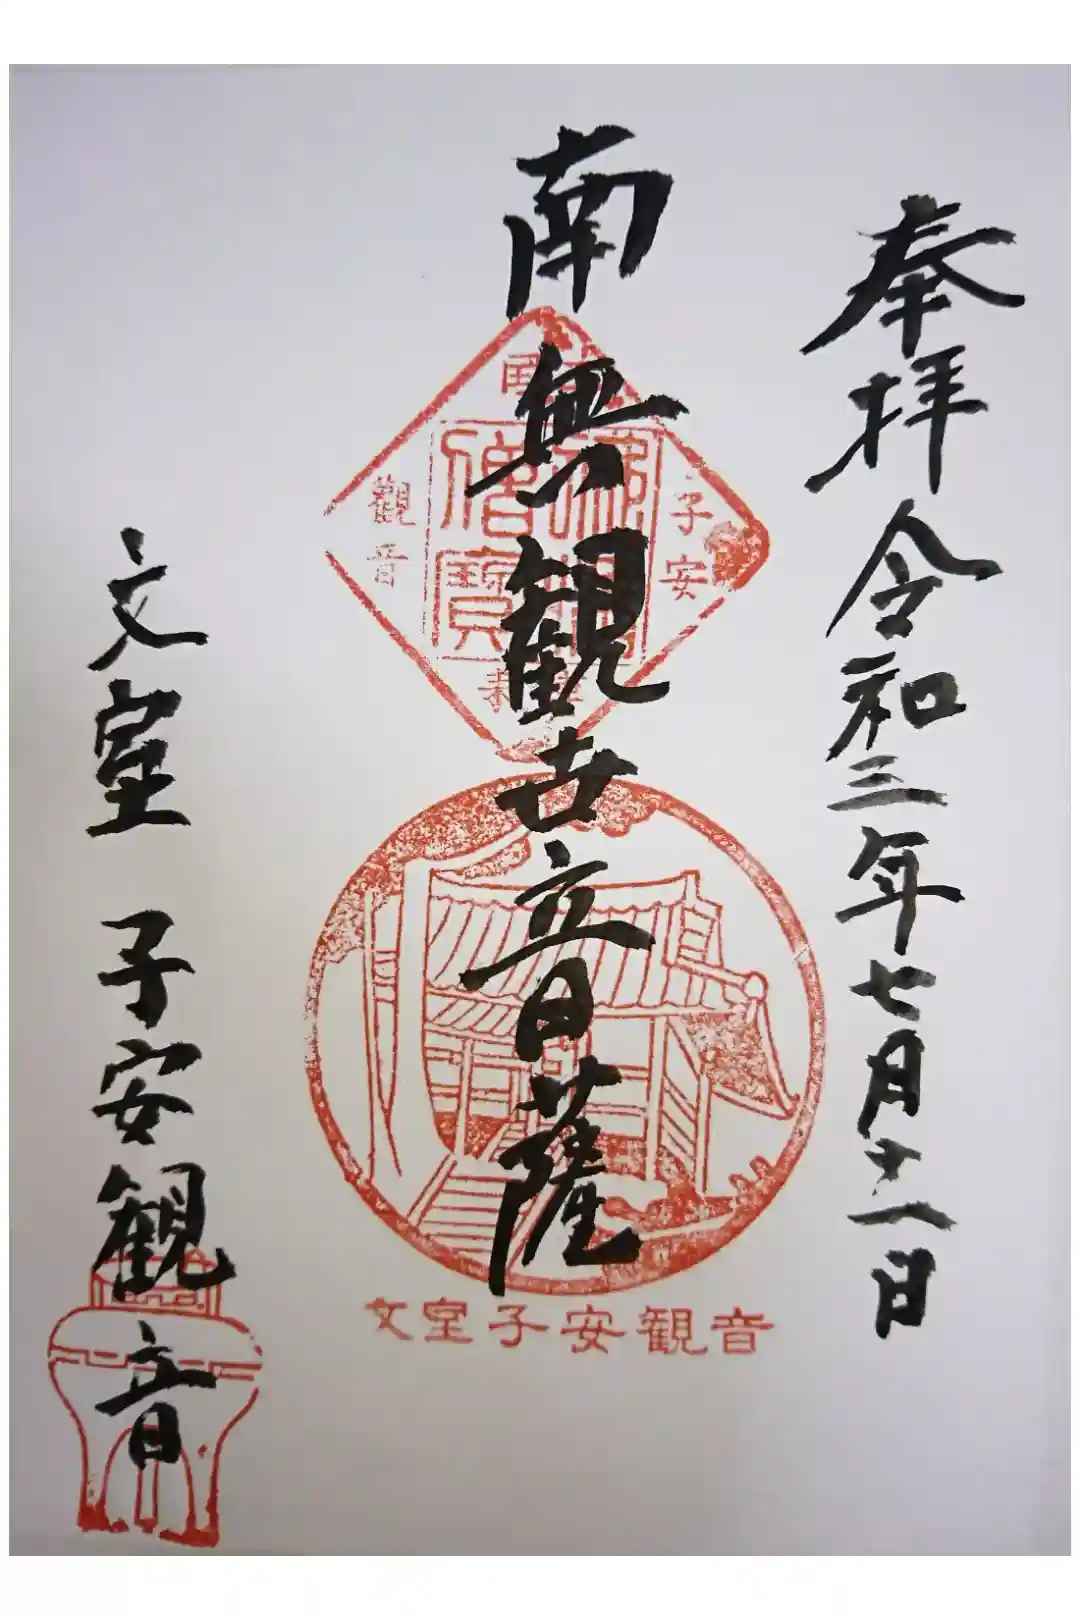 奉拝 令和三年七月十二日
南無観世音薩
文室 子安観音
子安
僧寶
觀音
文室子安観音